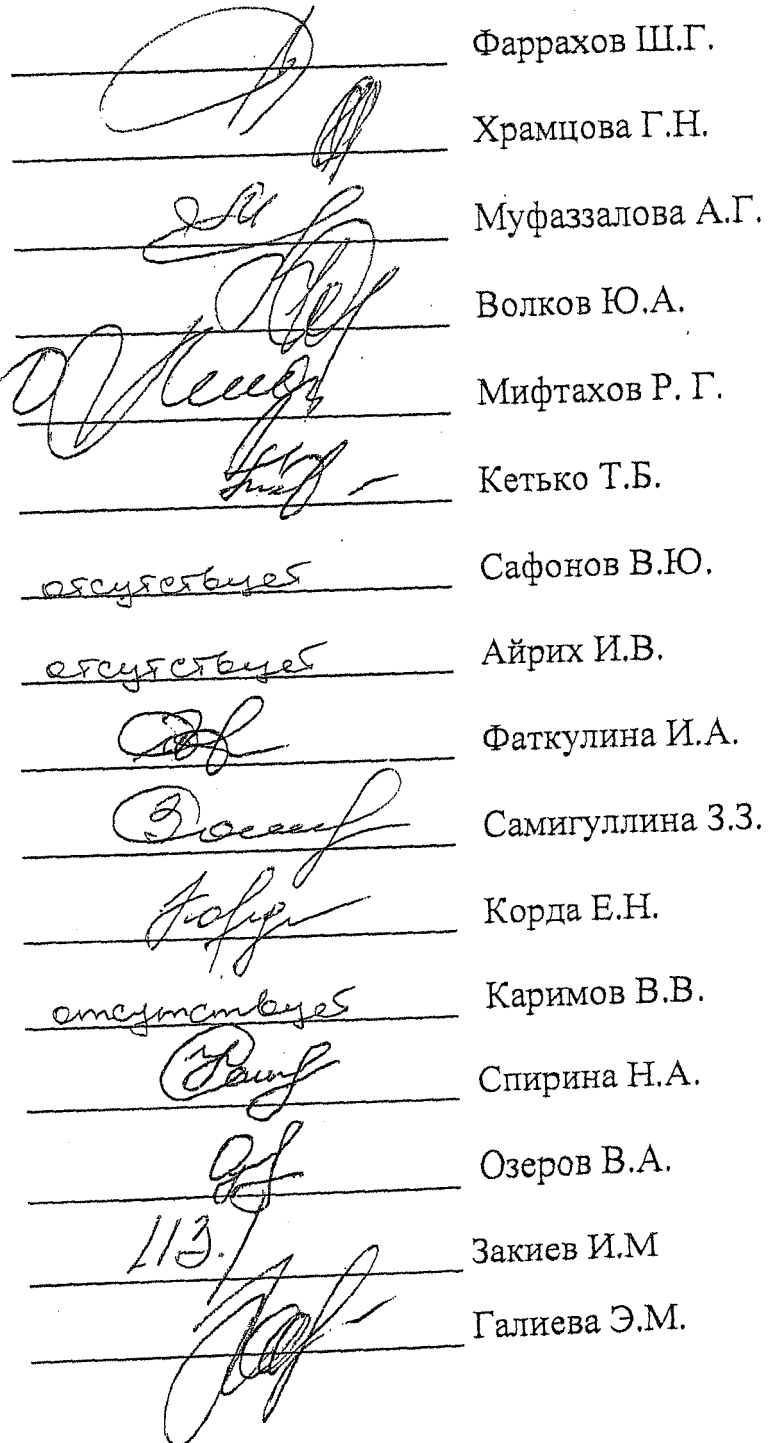 Фаррахов Ш.Г.
Храмцова Г.Н.
Муфаззалова А.Г.
Волков Ю.А.
Мифтахов Р. Г.
Кетько Т.Б.
отсутствует Сафонов В.Ю.
отсутствует Айрих И.В.
Фаткулина И.А.
Самигуллина З.З.
Корда Е.Н.
отсутствует Каримов В.В.
Спирина Н.А.
Озеров В.А.
Закиев И.М
Галиева Э.М.